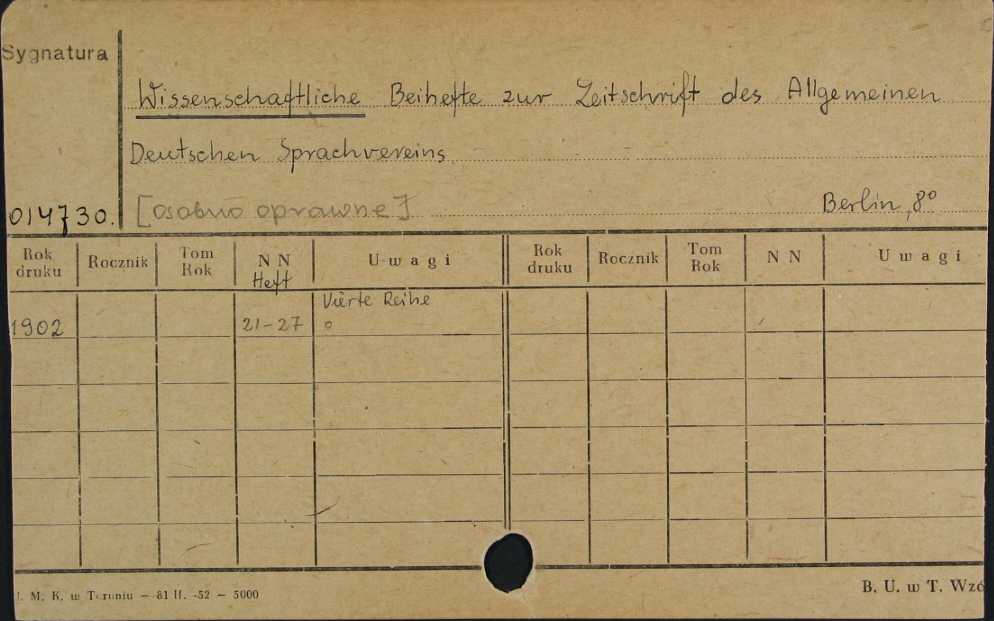 Sygnatura
Wissenschaftliche Beihefte zur Zeitschrift des Allgemeinen
Deutschen Sprachvereins
014730. [osobno oprawne] Berlin, 8°
Rok druku Rocznik Tom Rok N N Heft Uwagi Rok druku Rocznik Tom Rok N N Uwagi
Vierte Reihe
1902 21-27 o
M. K. w Toruniu — 81 II. -52 — 5000
B. U. w T. Wzó